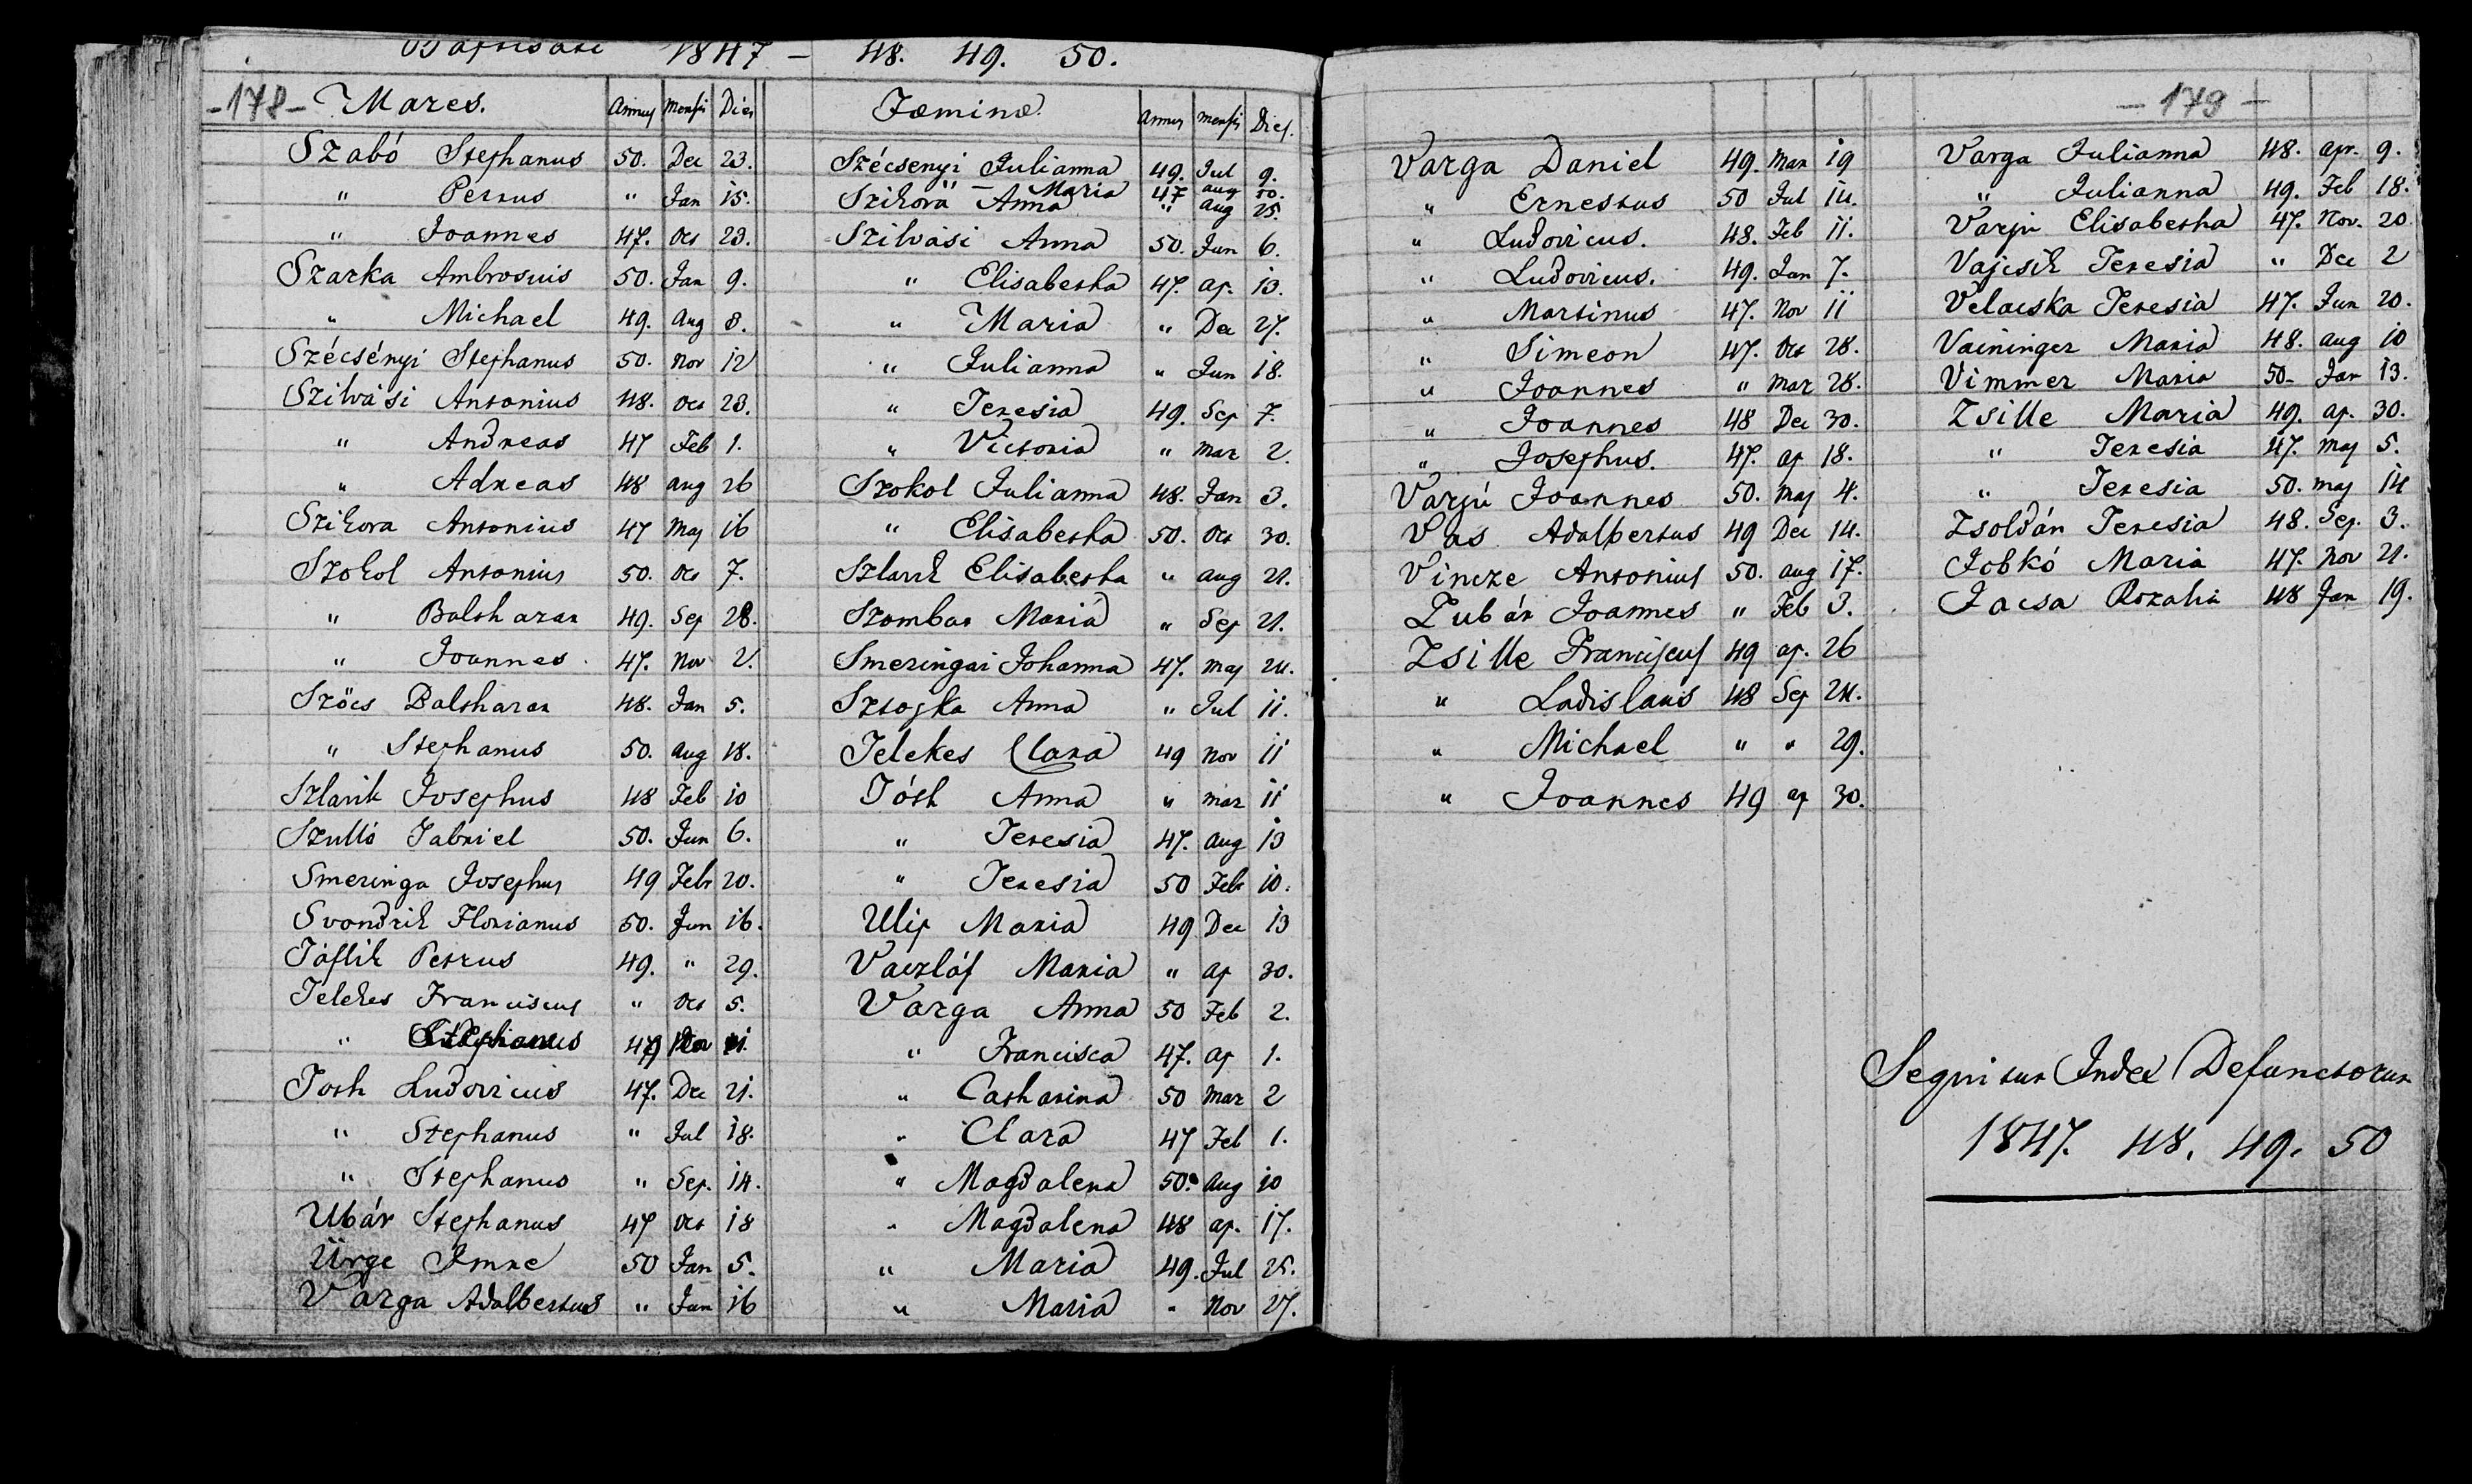 Baptisati 1847 - 48. 49. 50.
-178- Mares. Annus Mensis Dies
Szabó Stephanus 50. Dec 23.
" Petrus " Jan 15.
" Joannes 47. Oct 23.
Szarka Ambrosius 50. Jan 9.
" Michael 49. Aug 8.
Szécsényi Stephanus 50. Nov 12
Szilvási Antonius 48. Oct 23.
" Andreas 47 Feb 1.
" Adreas 48 aug 26
Szikora Antonius 47 Maj 16
Szokol Antonius 50. Oct 7.
" Balthazar 49. Sep 28.
" Joannes 47. Nov 2.
Szöcs Balthazar 48. Jan 5.
" Stephanus 50. aug 18.
Szlavik Josephus 48 Feb 10
Szulló Gabriel 50. Jun 6.
Smeringa Josephus 49 Febr 20.
Svondrik Florianus 50. Jun 16.
Táflik Petrus 49. " 29.
Telekes Franciscus " Oct 5.
" Stephanus
Toth Ludovicus 47. Dec 21.
" Stephanus " Jul 18.
" Stephanus " Sep. 14.
Ubár Stephanus 47 Oct 18
Ürge Imre 50 Jan 5.
Varga Adalbertus " Jan 16
Fœminæ. Annus Mensis Dies.
Szécsenyi Julianna 49. Jul 9.
" - Maria 47 aug 10.
Szikora Anna " aug 25.
Szilvási Anna 50. Jun 6.
" Elisabetha 47. ap. 13.
" Maria " Dec 27.
" Julianna " Jun 18.
" Teresia 49. Sep 7.
" Victoria " Mar 2.
Szokol Julianna 48. Jan 3.
" Elisabetha 50. Oct 30.
Szlavik Elisabetha " aug 21.
Szombat Maria " Sep 21.
Smeringai Johanna 47. Maj 24.
Sztojka Anna " Jul 11.
Telekes Clara 49 Nov 11
Tóth Anna " mar 11
" Teresia 47. aug 13
" Teresia 50 Feb 10.
Ulip Maria 49 Dec 13
Vaczláf Maria " ap 30.
Varga Anna 50 Feb 2.
" Francisca 47. ap 1.
" Catharina 50 Mar 2
" Clara 47 Feb 1.
" Magdalena 50. Aug 10
" Magdalena 48 ap. 17.
" Maria 49. Jul 25.
" Maria " Nov 27.
Varga Daniel 49. Mar 19
" Ernestus 50 Jul 14.
" Ludovicus. 48. Feb 11.
" Ludovicus. 49. Jan 7.
" Martinus 47. Nov 11
" Simeon 47. Oct 28.
" Joannes " Mar 28.
" Joannes 48 Dec 30.
" Josephus. 47. ap 18.
Varjú Joannes 50. Maj 4.
Vas Adalbertus 49 Dec 14.
Vincze Antonius 50. aug 17.
Zubár Joannes " Feb 3.
Zsille Franciscus 49 ap. 26
" Ladislaus 48 Sep 24.
" Michael " " 29.
" Joannes 49 ap 30.
- 179 -
Varga Julianna 48. apr. 9.
" Julianna 49. Feb 18.
Varjú Elisabetha 47. Nov. 20
Vajcsik Teresia " Dec 2
Velacska Teresia 47. Jun 20.
Vaininger Maria 48. aug 10
Vimmer Maria 50- Jan 13.
Zsille Maria 49. ap. 30.
" Teresia 47. maj 5.
" Teresia 50. maj 14
Zsoldán Teresia 48. Sep. 3.
Jobkó Maria 47. Nov 21.
Jacsa Rozalia 48 Jan 19.
Sequitur Index Defunctorum
1847. 48. 49. 50